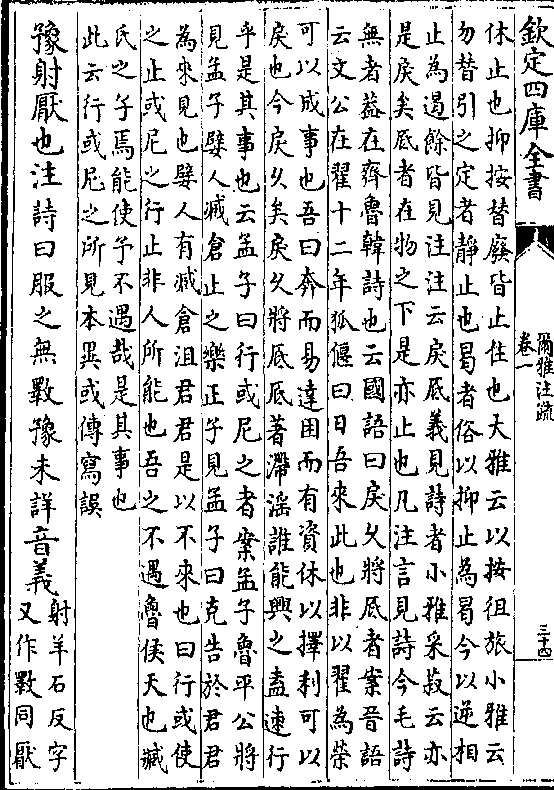 欽定四庫全書
爾雅注疏
卷一
三十四
休止也抑按替廢皆止住也大雅云以按徂旅小雅云
勿替引之定者靜止也曷者俗以抑止為曷今以逆相
止為遏餘皆見注注云戾底義見詩者小雅采菽云亦
是戾矣底者在物之下是亦止也凡注言見詩今毛詩
無者蓋在齊魯韓詩也云國語曰戾久將底者案晉語
云文公在翟十二年狐偃曰日吾來此也非以翟為榮
可以成事也吾曰奔而易達困而有資休以擇利可以
戾也今戾久矣戾久將底底著滯淫誰能興之盍速行
乎是其事也云孟子曰行或尼之者案孟子魯平公將
見孟子嬖人臧倉止之樂正子見孟子曰克告於君君
為來見也嬖人有臧倉沮君君是以不來也曰行或使
之止或尼之行止非人所能也吾之不遇魯侯天也臧
氏之子焉能使予不遇哉是其事也
此云行或尼之所見本異或傳寫誤
豫射厭也注詩曰服之無斁豫未詳音義
射羊石反字
又作斁同厭